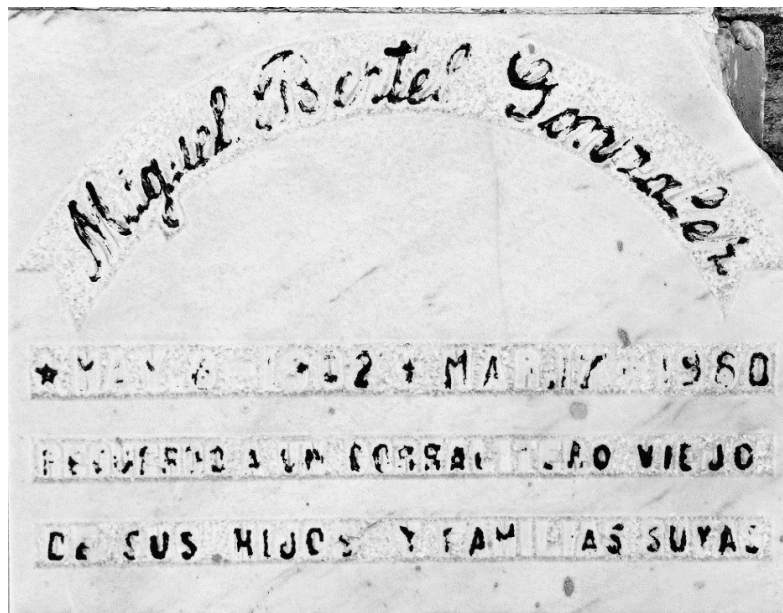 Miguel Bertel Gonzalez
★ MAR.17-1960
RECUERDO A UN CORRALERO VIEJO
DE SUS HIJOS Y FAMILIAS SUYAS